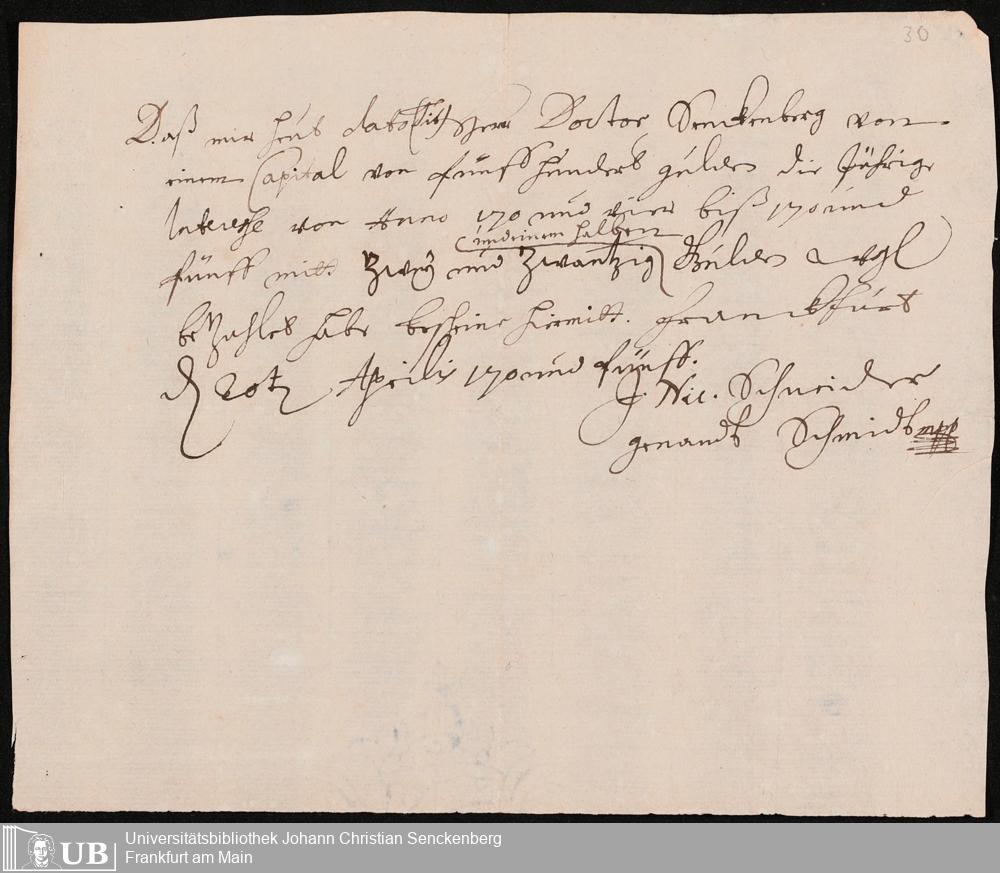 30
Daß mir heut dato (tit) Herr Doctor Senckenberg von
einem Capital von fünffhundert gülden die Jährige
Interesse von Anno 170 und vier biß 170 und
und einem halben
fünff mitt Zwey und Zwantzig Gülden
bezahlet habe bescheine hiermitt. Franckfurt
d 20t Aprilis 170 und fünff.
J. Nic. Schneider
genandt Schmidt mpp
UB
Universitätsbibliothek Johann Christian Senckenberg
Frankfurt am Main